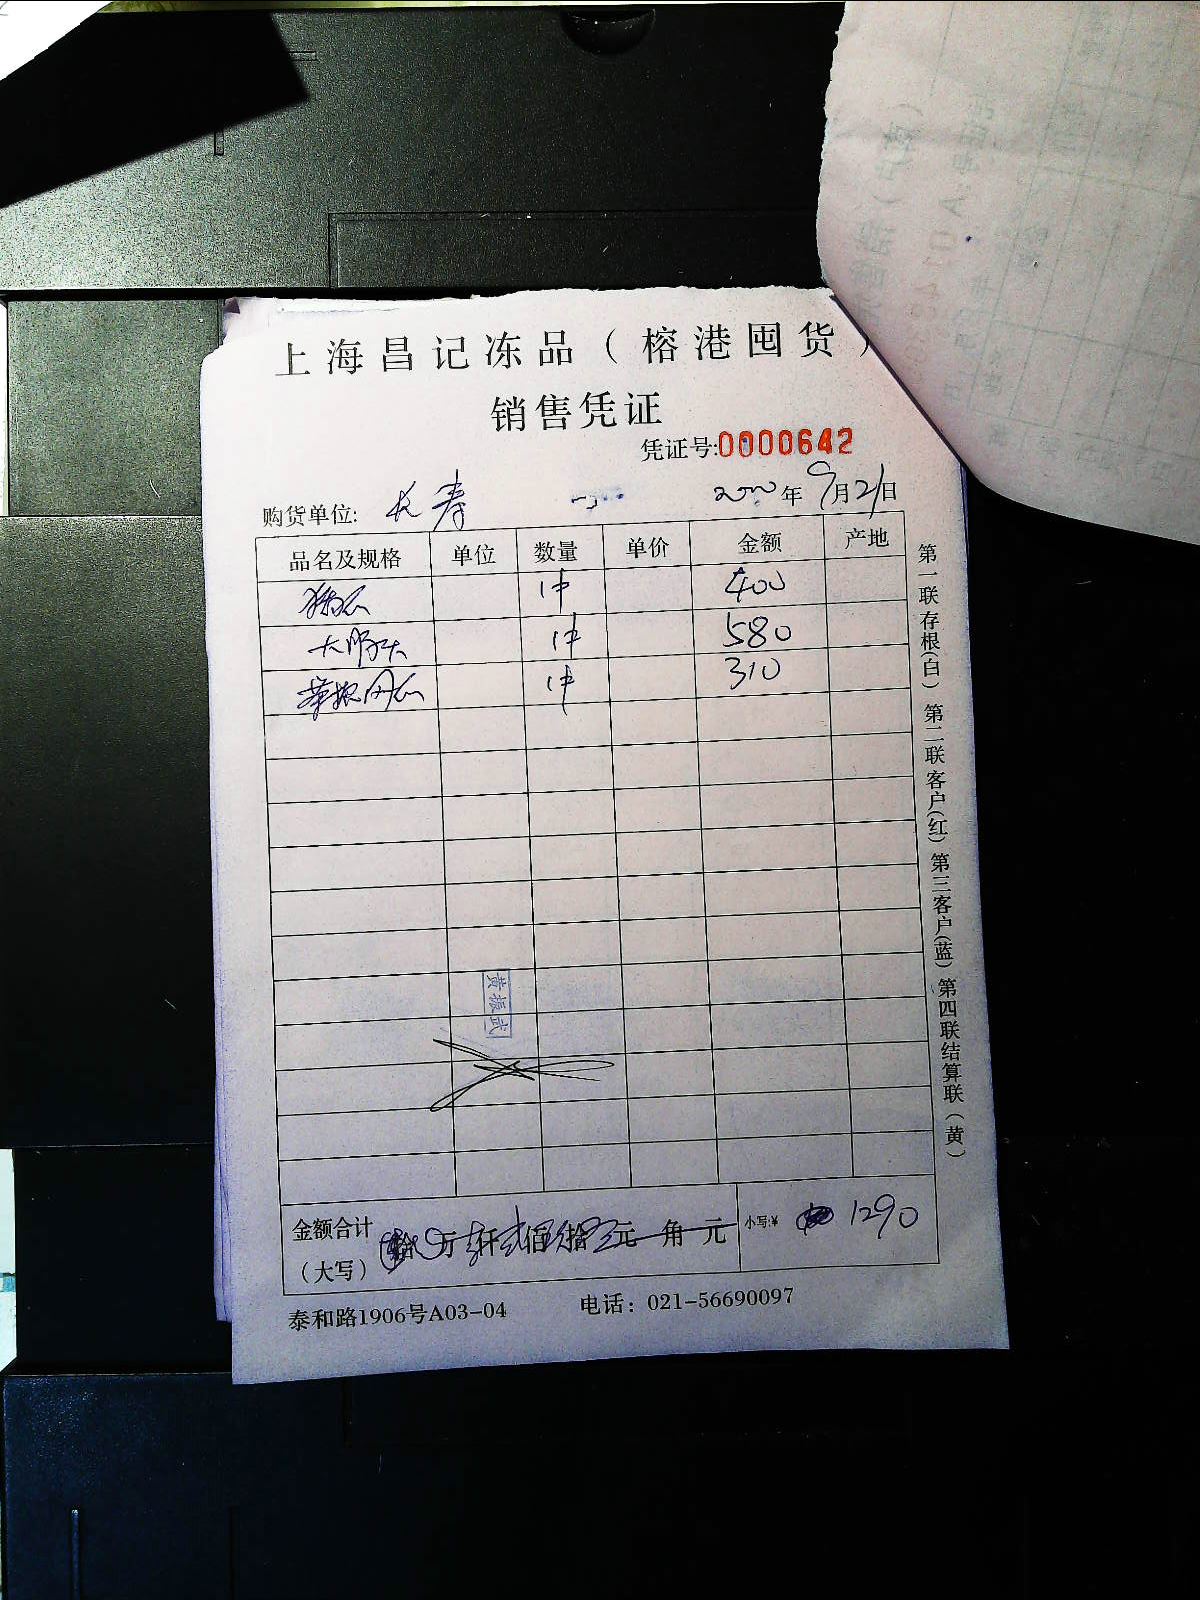 上海昌记冻品（榕港囤货）
销售凭证
凭证号:0000642
购货单位: 长寿 2020年9月21日
品名及规格 单位 数量 单价 金额 产地
1件 400
大 1件 580
1件 310
黄振武
金额合计 万 仟 佰 拾 元 角 元 小写:¥ 1290
（大写）
泰和路1906号A03-04 电话：021-56690097
第一联存根(白) 第二联客户(红) 第三客户(蓝) 第四联结算联(黄)